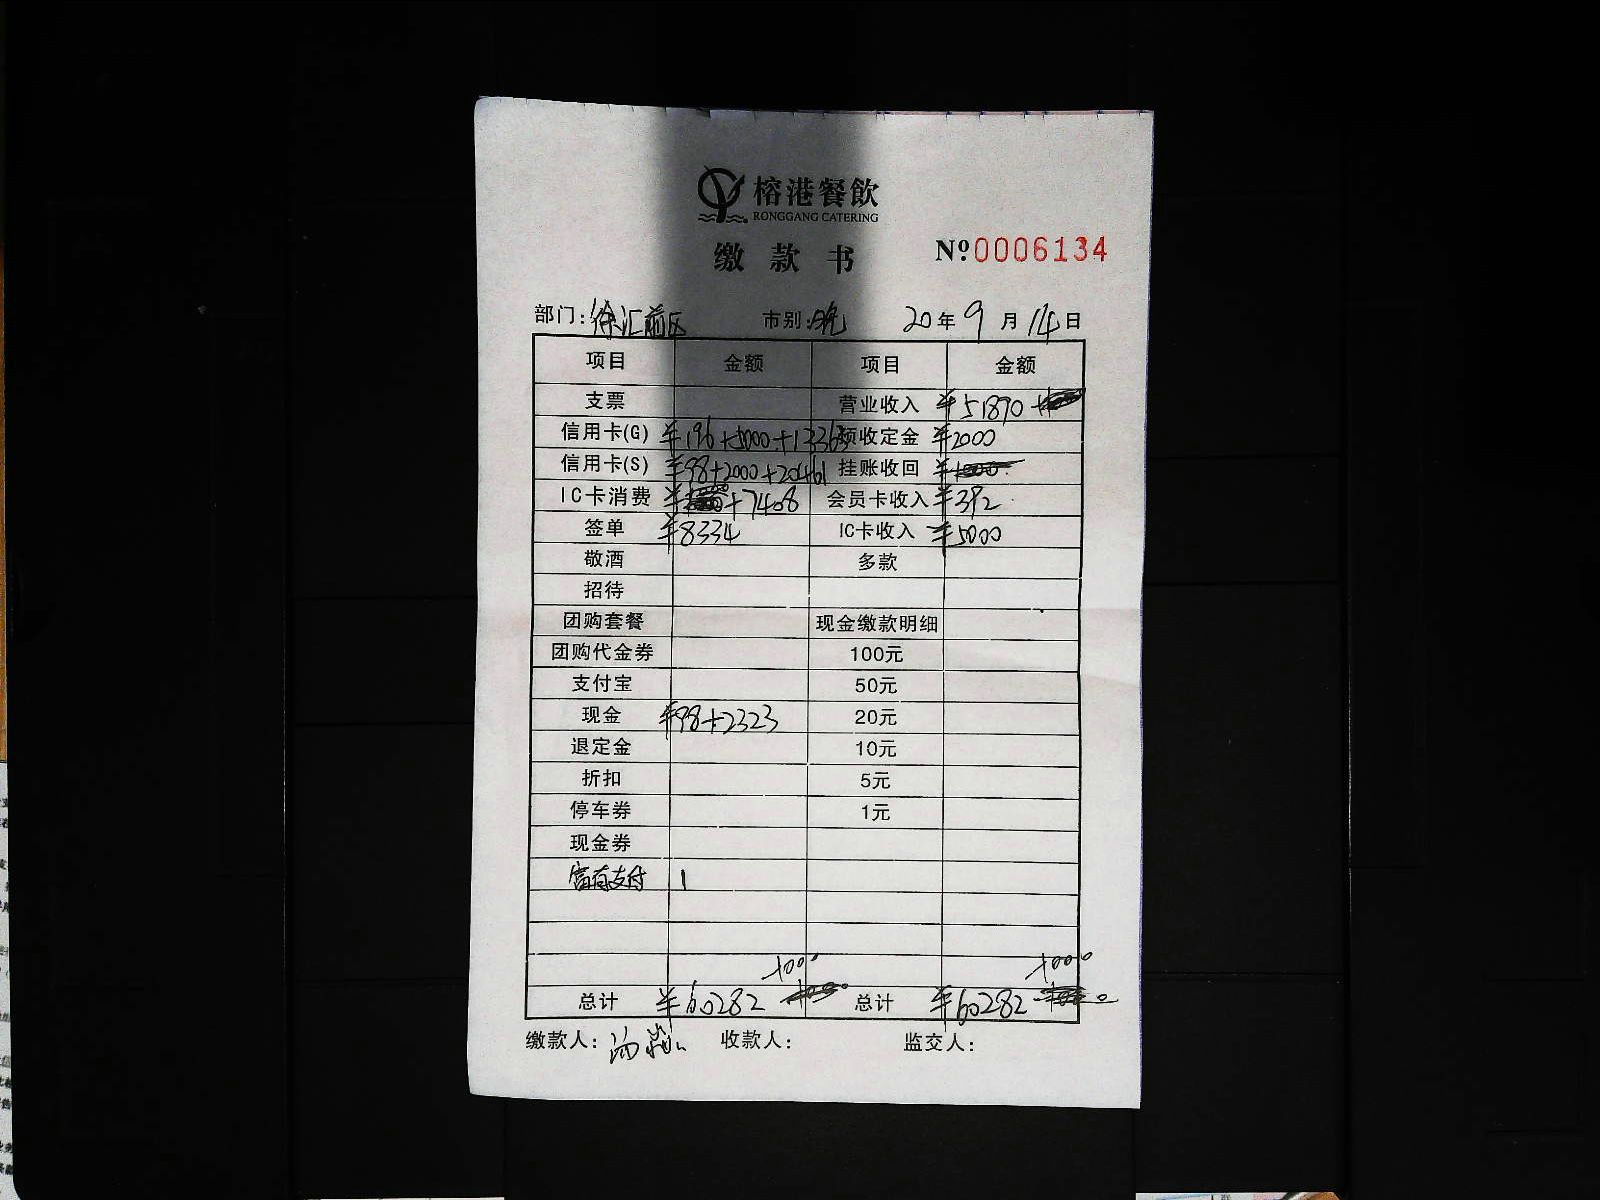 榕港餐飲
RONGGANG CATERING
缴款书 Nº0006134
部门:徐汇前区 市别:晚 20年9月14日
项目 金额 项目 金额
支票 营业收入 ¥51870
信用卡(G) ¥196+5000+12363 预收定金 ¥2000
信用卡(S) ¥98+2000+20461 挂账收回
IC卡消费 ¥ +7408 会员卡收入 ¥392
签单 ¥8334 IC卡收入 ¥5000
敬酒 多款
招待
团购套餐 现金缴款明细
团购代金券 100元
支付宝 50元
现金 ¥98+2323 20元
退定金 10元
折扣 5元
停车券 1元
现金券
富有支付 1
+1000 +1000
总计 ¥60282 总计 ¥60282
缴款人: 收款人: 监交人: